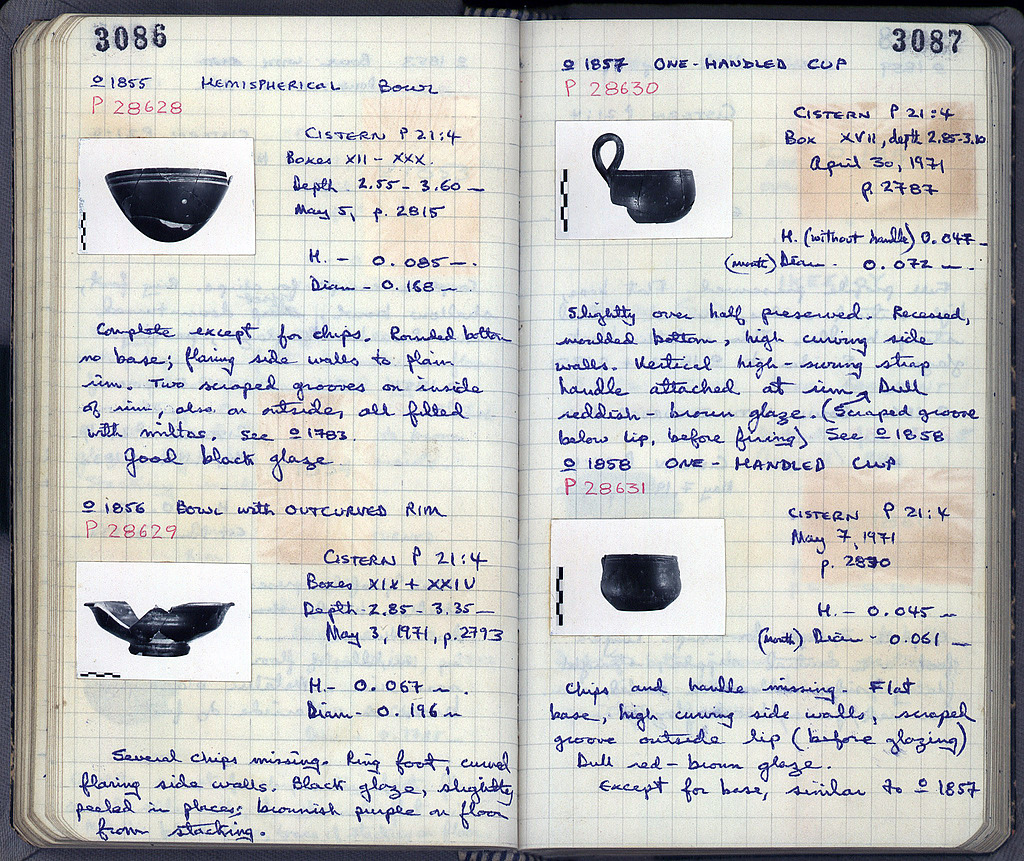 3086
o 1855 HEMISPHERICAL BOWL
P 28628
CISTERN P 21:4
Boxes XII - XXX.
Depth - 2.55 - 3.60 m
May 5, p. 2815
H. - 0.085 m.
Diam - 0.168 m
Complete except for chips. Rounded bottom
no base; flaring side walls to plain
rim. Two scraped grooves on inside
of rim, also on outside, all filled
with miltos. See o 1783.
Good black glaze.
o 1856 BOWL with OUTCURVED RIM
P 28629
CISTERN P 21:4
Boxes XIX + XXIV
Depth - 2.85 - 3.35 m
May 3, 1971, p. 2793
H - 0.067 m.
Diam - 0.196 m
Several chips missing. Ring foot, curved
flaring side walls. Black glaze, slightly
peeled in places; brownish purple on floor
from stacking.
3087
o 1857 ONE-HANDLED CUP
P 28630
CISTERN P 21:4
Box XVII, depth 2.85-3.10
April 30, 1971
p. 2787
H. (without handle) 0.047 m
(mouth) Diam - 0.072 m.
Slightly over half preserved. Recessed,
moulded bottom, high curving side
walls. Vertical high-swung strap
handle attached at rim. Dull
reddish-brown glaze. (Scraped groove
below lip, before firing) See o 1858
o 1858 ONE-HANDLED CUP
P 28631
CISTERN P 21:4
May 7, 1971
p.
H. - 0.045 m
(mouth) Diam - 0.061 m
Chips and handle missing. Flat
base, high curving side walls, scraped
groove outside lip (before glazing)
Dull red-brown glaze.
Except for base, similar to o 1857